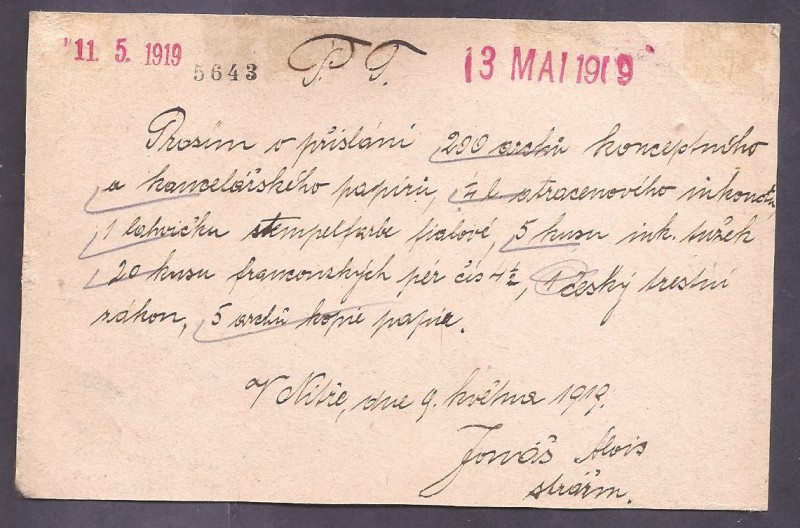 11. 5. 1919 5643 P. T. 13 MAI 1919
Prosím o přislání 200 archů konceptného
a kancelářského papírů, ¼ l atracenového inkoustu,
1 lahvičku stempelfarbe fialové, 5 kusu ink. tužek
20 kusu francouských pér čís 4½, 1 český trestní
zákon, 5 archů kopie papíe.
V Nitře, dne 9. května 1919.
Jonáš Alois
strážm.